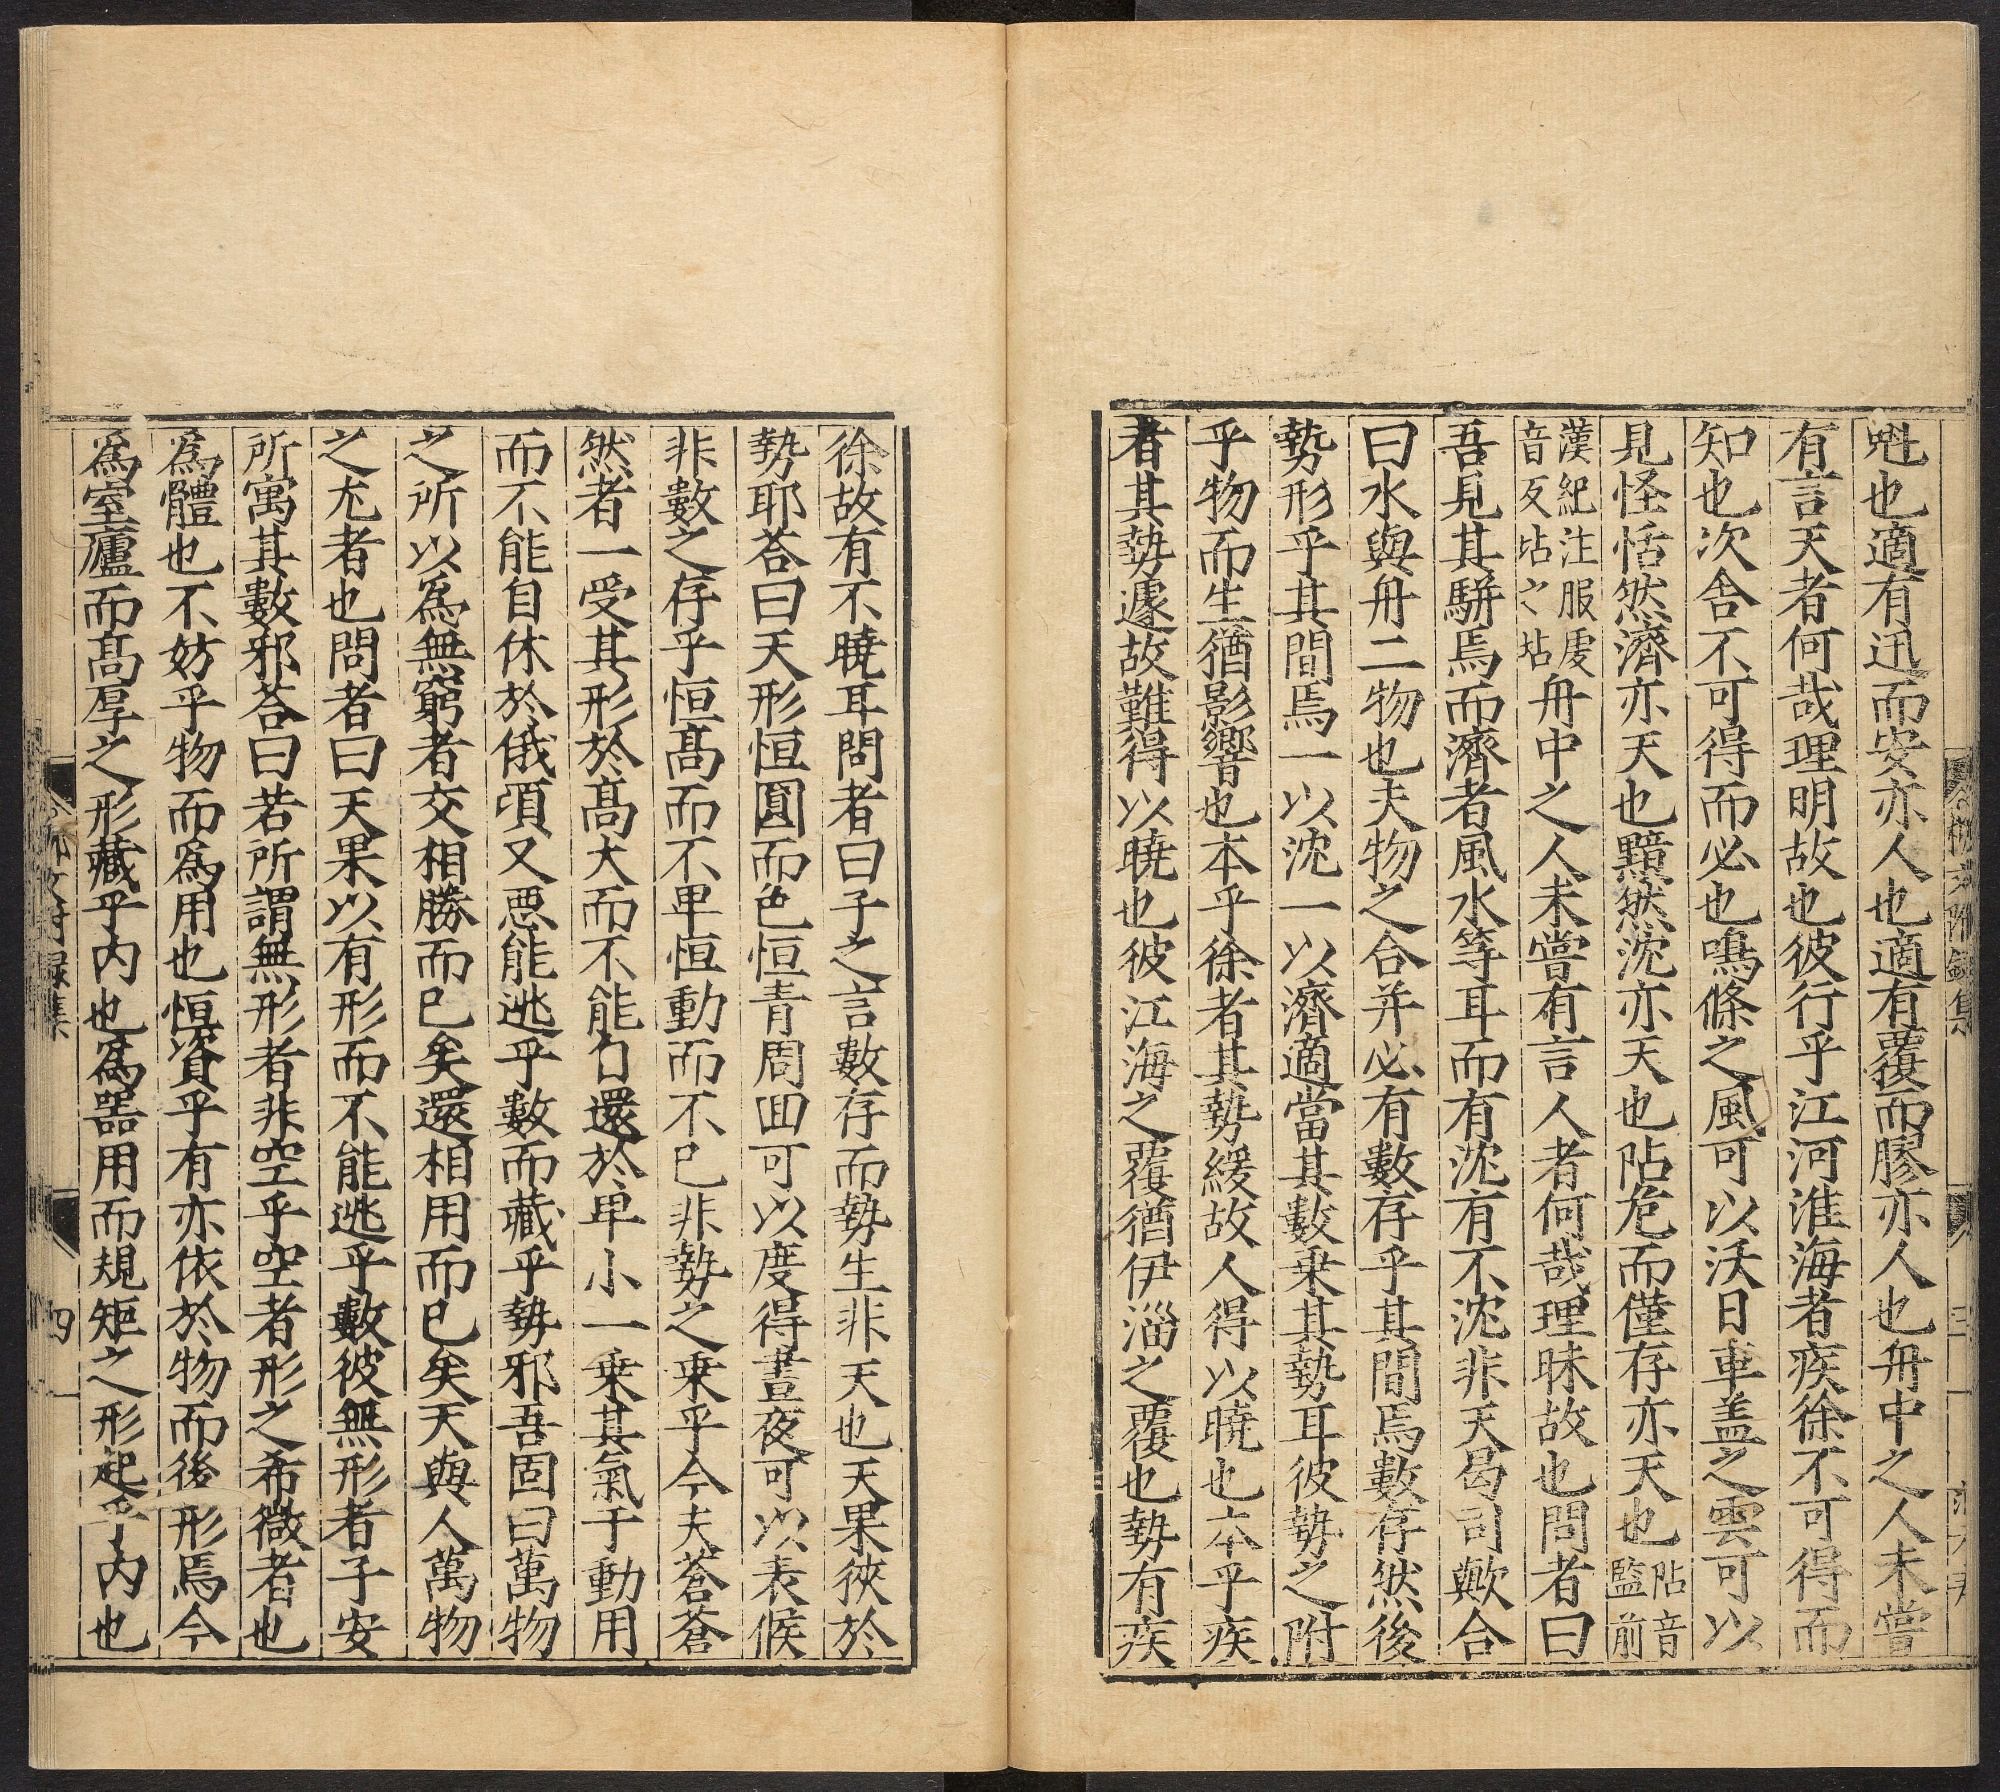 䰟也適有迅而安亦人也適有覆而膠亦人也舟中之人未嘗
有言天者何哉理明故也彼行乎江河淮海者疾徐不可得而
知也次舍不可得而必也鳴條之風可以沃日車盖之雲可以
見怪恬然濟亦天也黯然沈亦天也阽危而僅存亦天也阽音監前
漢紀注服虔音反坫之坫舟中之人未嘗有言人者何哉理昧故也問者曰
吾見其駢焉而濟者風水等耳而有沈有不沈非天曷司歟合
曰水與舟二物也夫物之合并必有數存乎其間焉數存然後
勢形乎其間焉一以沈一以濟適當其數乗其勢耳彼勢之附
乎物而生猶影響也本乎徐者其勢緩故人得以曉也本乎疾
者其勢遽故難得以曉也彼江海之覆猶伊淄之覆也勢有疾
徐故有不曉耳問者曰子之言數存而勢生非天也天果狹於
勢耶荅曰天形恒圓而色恒青周回可以度得晝夜可以表候
非數之存乎恒高而不卑恒動而不已非勢之乗乎今夫蒼蒼
然者一受其形於高大而不能自還於卑小一乗其氣于動用
而不能自休於俄頃又惡能逃乎數而藏乎勢邪吾固曰萬物
之所以爲無窮者交相勝而已矣還相用而已矣天與人萬物
之尤者也問者曰天果以有形而不能逃乎數彼無形者子安
所寓其數邪荅曰若所謂無形者非空乎空者形之希微者也
爲體也不妨乎物而爲用也恒資乎有亦依於物而後形焉今
爲室廬而高厚之形藏乎内也爲器用而規矩之形起乎内也
四